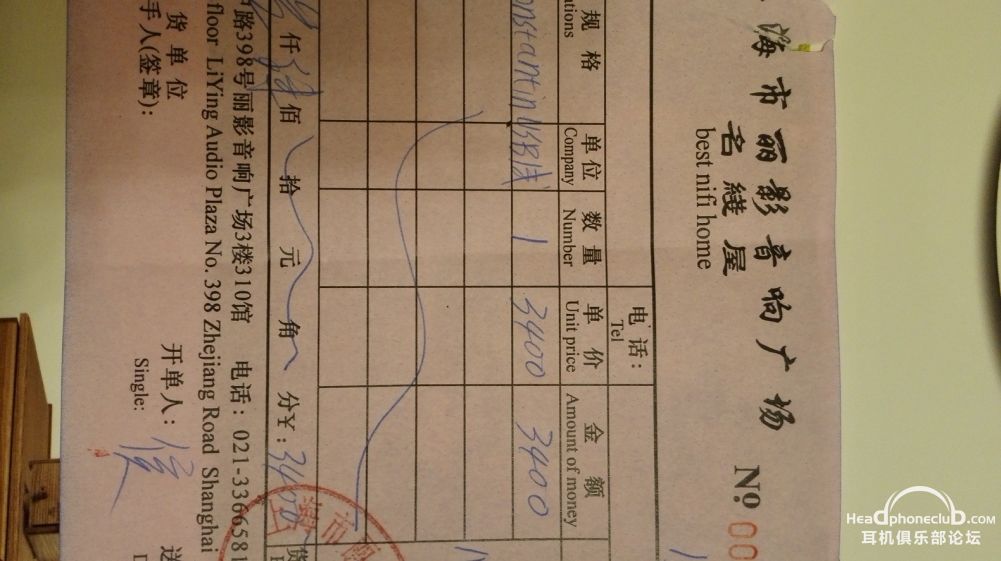 海市丽影音响广场
名缝屋
best nifi home
No 00
电话:
Tel
规格 单位 数量 单价 金额
ations Company Number Unit price Amount of money
onstantin USB线 1 3400 3400
仟 佰 拾 元 角 分¥: 3400
路398号丽影音响广场3楼310馆 电话: 021-3366581
floor LiYing Audio Plaza No. 398 Zhejiang Road Shanghai
货单位 开单人: 送
手人(签章): Single:
HeadphoneClub.com
耳机俱乐部论坛